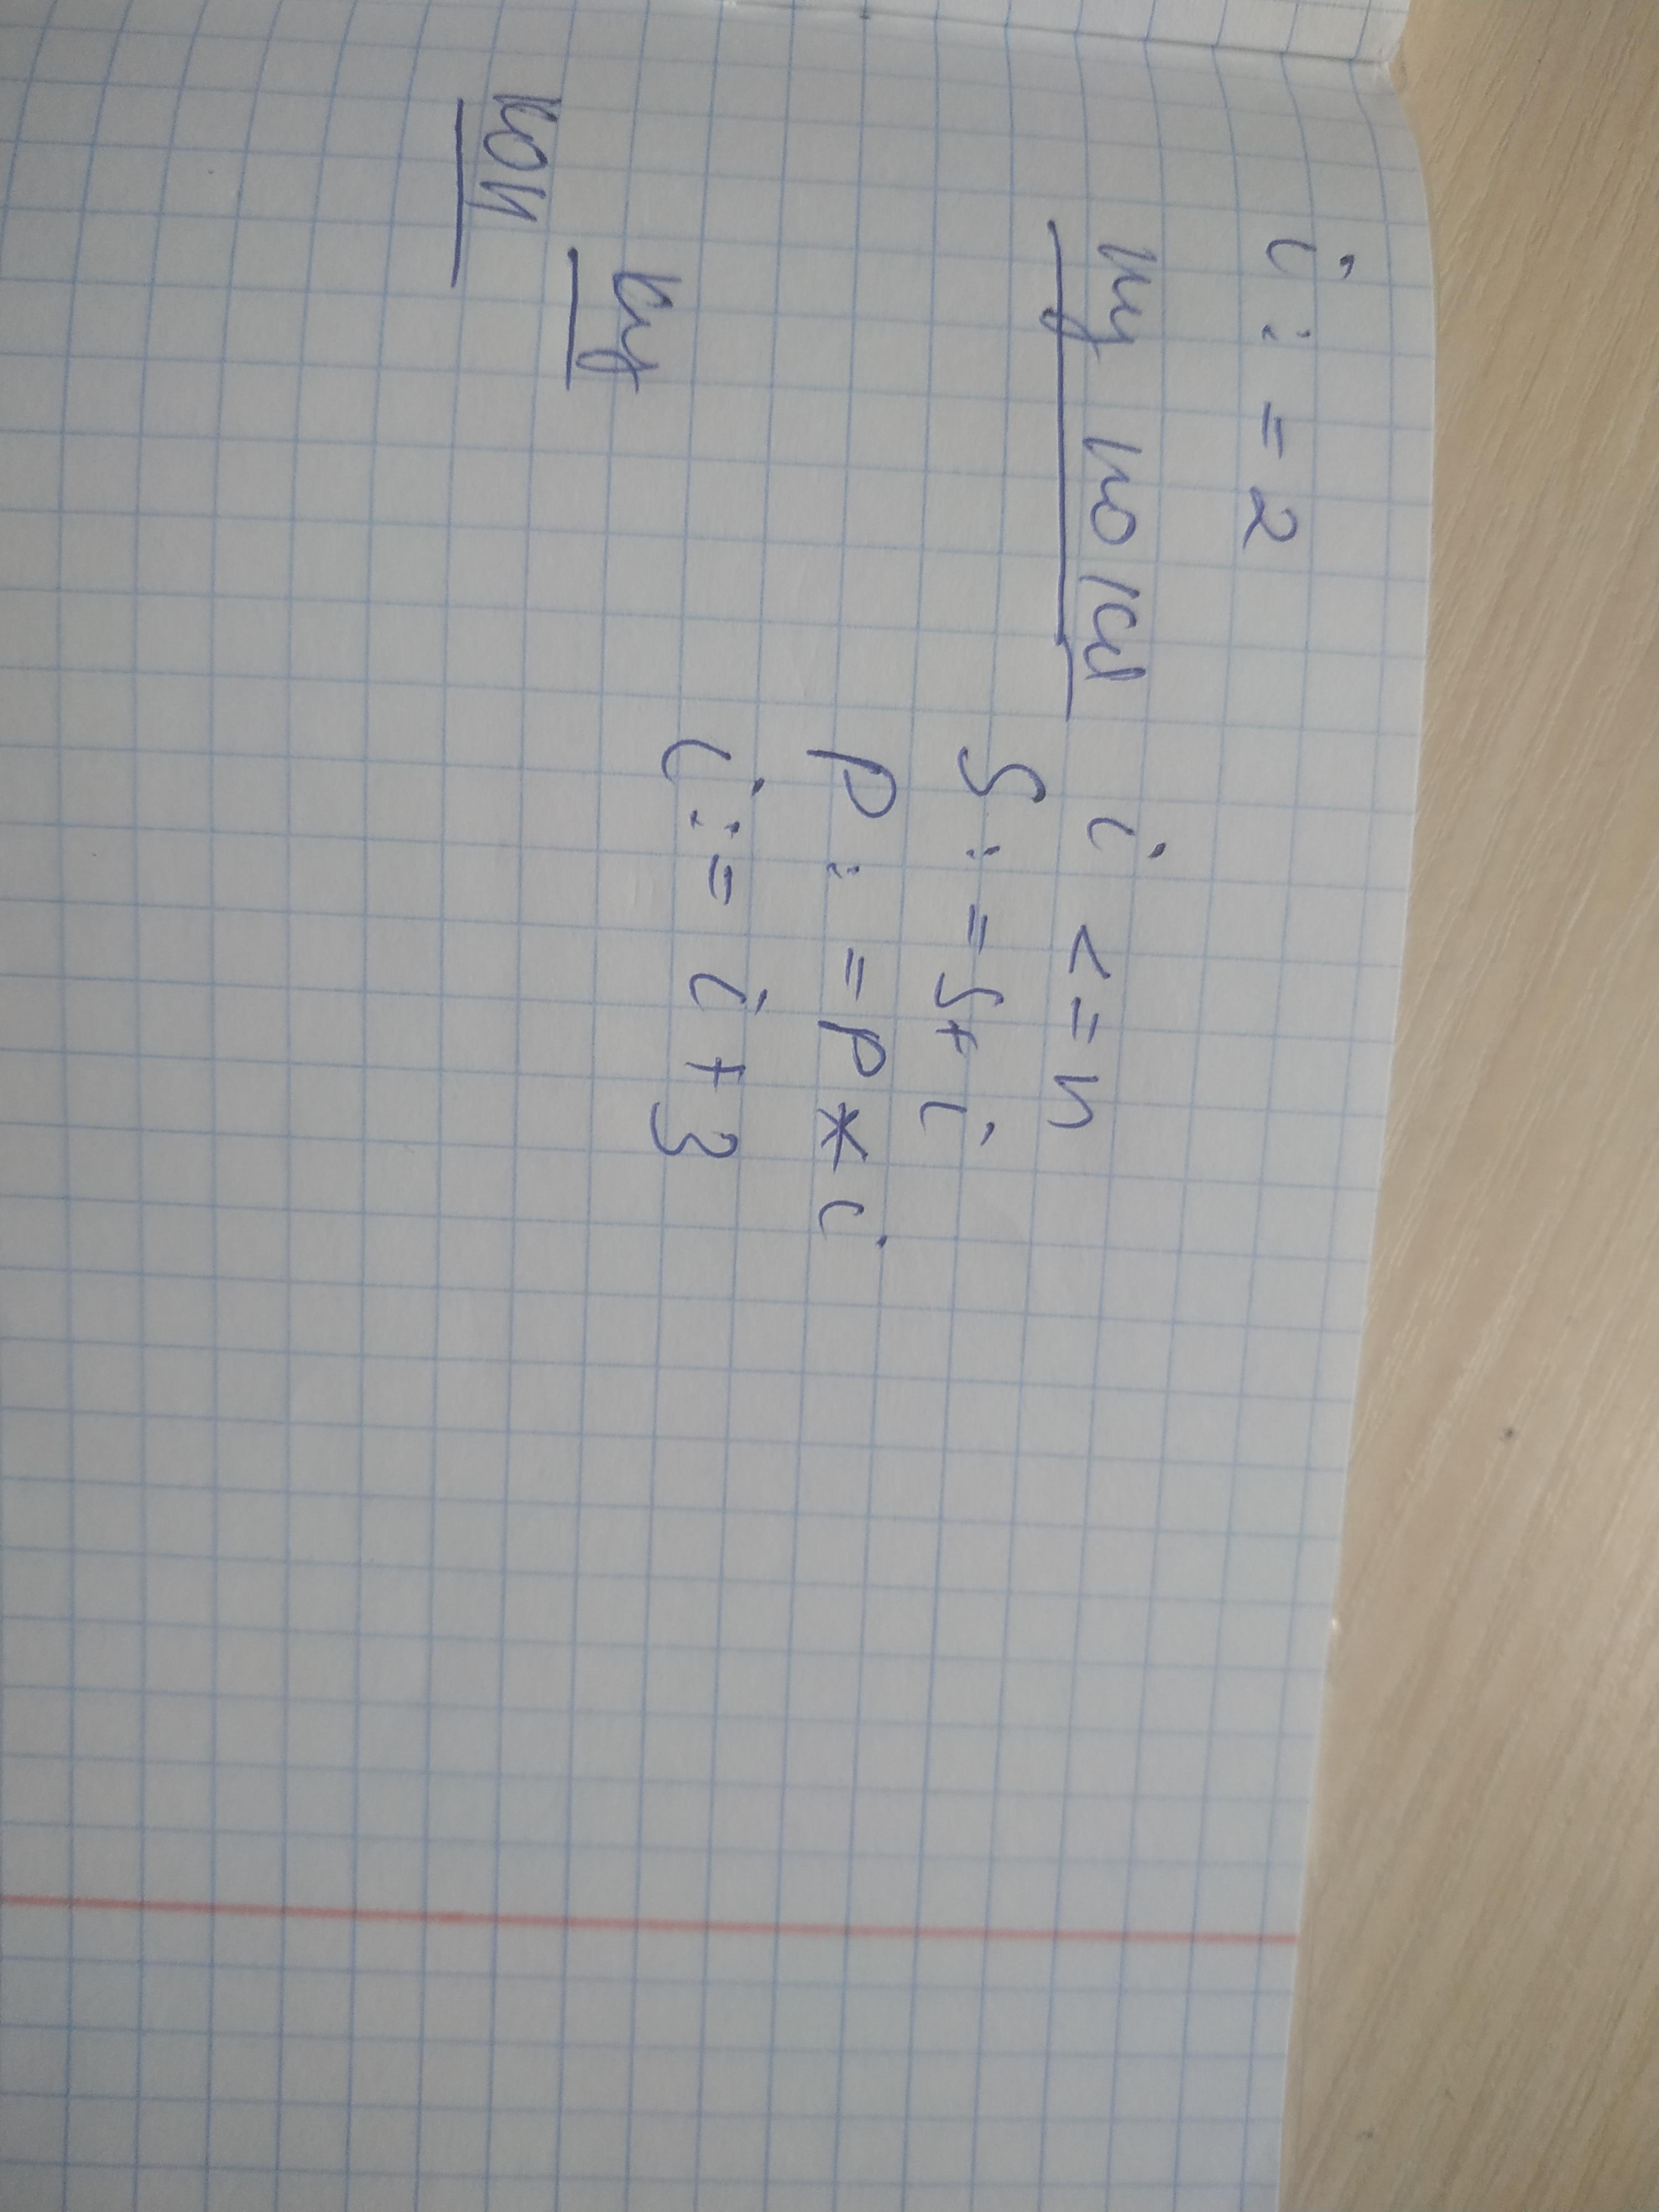 i := 2
нц пока i <= n
S := S + i
P := P * i
i := i + 3
кц
кон